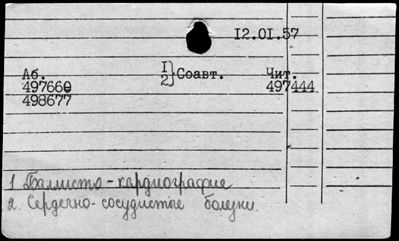 12.01.57
Аб. 1 2 } Соавт. Чит.
497660 497444
498677
1 Баллисто-кардиография
2. Сердечно-сосудистые болезни.